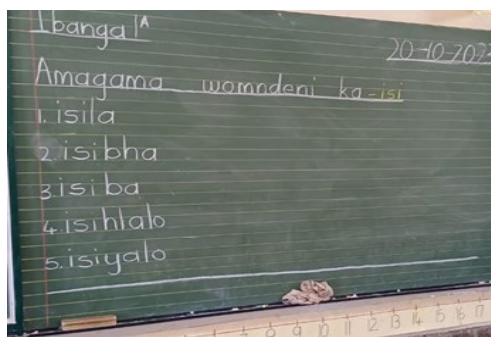 Ibanga 1A
20-10-202
Amagama womndeni ka-isi
1. isila
2. isibha
3. isiba
4. isihlalo
5. isiyalo
7 8 9 10 11 12 13 14 15 16 17